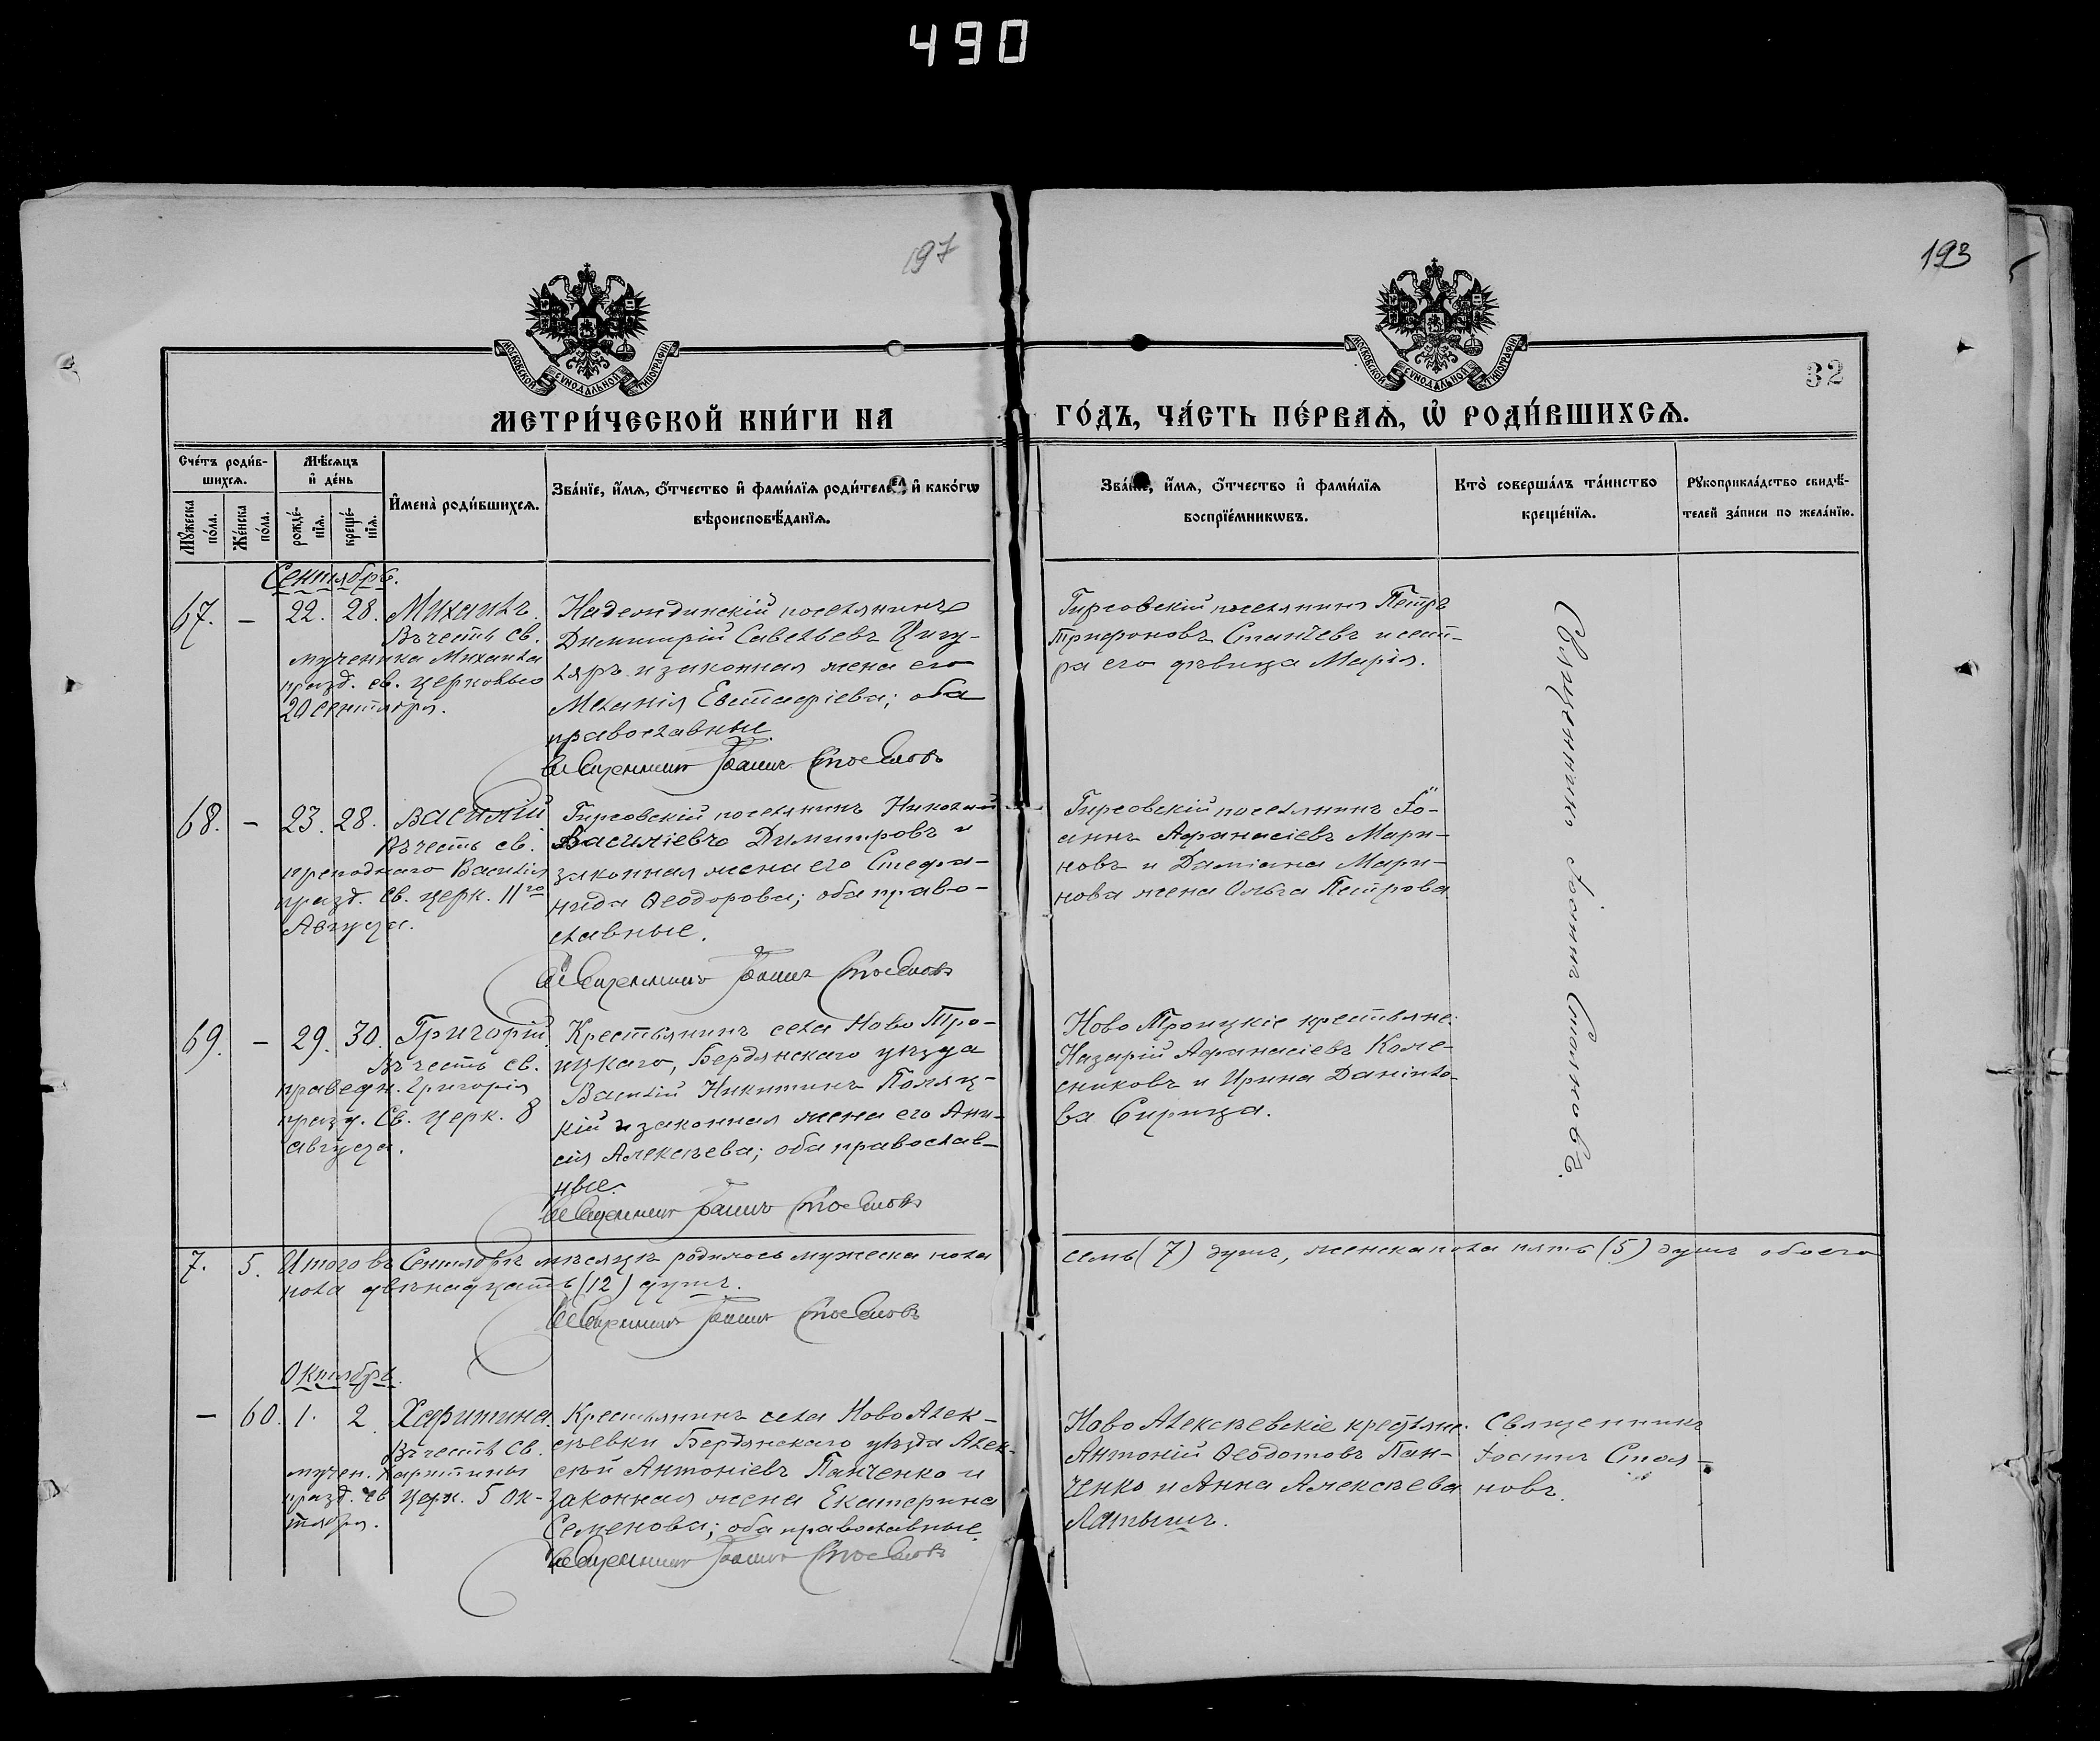 490
197
193
32
МОСКОВСКОЙ СѴНОДАЛЬНОЙ ТИПОГРАФІИ
МОСКОВСКОЙ СѴНОДАЛЬНОЙ ТИПОГРАФІИ
МЕТРИ́ЧЕСКОЙ КНИ́ГИ НА ГО́ДЪ, ЧА́СТЬ ПЕ́РВАѦ, Ѽ РОДИ́ВШИХСѦ.
Сче́тъ роди́в-
шихсѧ.
Мꙋ́жеска по́ла.
Же́нска по́ла.
Мѣ́сѧцъ
и҆ де́нь
рожде́-
нїѧ.
креще́-
нїѧ.
И҆мена̀ роди́вшихсѧ.
Зва́нїе, и҆́мѧ, ѻ҆́тчество и҆ фами́лїѧ роди́телей, и҆ како́гѡ
вѣроисповѣ́данїѧ.
Зва́нїе, и҆́мѧ, ѻ҆́тчество и҆ фами́лїѧ
воспрїе́мникѡвъ.
Кто̀ соверша́лъ та́инство
креще́нїѧ.
Рꙋкоприкла́дство свидѣ́-
телей за́писи по жела́нїю.
Сентябрь.
67. – 22. 28. Михаилъ.
Въ честь св.
мученика Михаила
празд. св. церковью
20 Сентября.
Димитрій Савельевъ Цигу-
ляръ и законная жена его
Меланія Евстафіева; оба
православные.
Священникъ Іоаннъ Стояновъ
Гирсовскій поселянинъ Петръ
Трифоновъ Станчевъ и сест-
ра его дѣвица Марія.
Священникъ Іоаннъ Стояновъ.
68. – 23. 28. Василій
Въ честь св.
преподнаго Василія
празд. св. церк. 11го
Августа.
Гирсовскій поселянинъ Николай
Василіевъ Димитровъ и
законная жена его Стефа-
нида Ѳеодорова; оба право-
славные.
Священникъ Іоаннъ Стояновъ
Гирсовскій поселянинъ Іо-
аннъ Афанасіевъ Мари-
новъ и Даміана Мари-
нова жена Ольга Петрова
69. – 29. 30. Григорій
Въ честь св.
праведн. Григорія
празд. Св. церк. 8
августа.
Крестьянинъ села Ново Тро-
ицкаго, Бердянскаго уѣзда
Василій Никитинъ Поляц-
кій и законная жена его Ани-
сія Алексѣева; оба православ-
ные.
Священникъ Іоаннъ Стояновъ
Ново Троицкіе крестьяне:
Назарій Афанасіевъ Коле-
сниковъ и Ирина Данило-
ва Сирица.
7. 5. Итого въ Сентябрѣ мѣсяцѣ родилось мужеска пола семь (7) душъ, женска пола пять (5) душъ обоего
пола двѣнадцать (12) душъ.
Священникъ Іоаннъ Стояновъ
Октябрь.
– 60. 1. 2 Харитина.
Въ честь св.
мучен. Харитины
празд. св. церк. 5 Ок-
тября.
Крестьянинъ села Ново Алек-
сѣевки Бердянскаго уѣзда Алек-
сѣй Антоніевъ Панченко и
законная жена Екатерина
Семенова; оба православные.
Священникъ Іоаннъ Стояновъ
Ново Алексѣевскіе крестьяне:
Антоній Ѳеодотовъ Пан-
ченко и Анна Алексѣева
Латышъ.
Священникъ
Іоаннъ Стоя-
новъ.